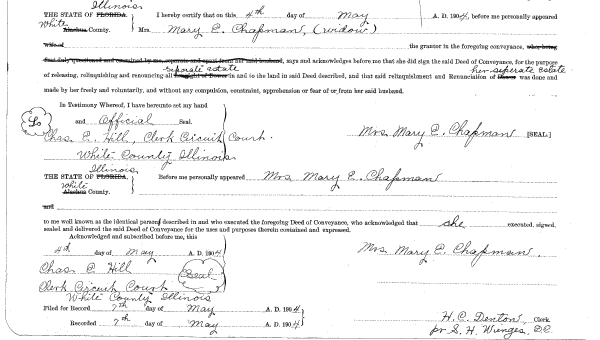 Illinois
THE STATE OF FLORIDA. I hereby certify that on this 4th day of May A. D. 1904, before me personally appeared
White
Alachua County. Mrs. Mary E. Chapman, (widow)
wife of the grantor in the foregoing conveyance, who being
said husband, says and acknowledges before me that she did sign the said Deed of Conveyance, for the purpose
seperate estate her seperate estate
of releasing, relinquishing and renouncing all in and to the land in said Deed described, and that said relinquishment and Renunciation of was done and
made by her freely and voluntarily, and without any compulsion, constraint, apprehension or fear of or from her said husband.
In Testimony Whereof, I have hereunto set my hand
and Official Seal.
Ls
Chas E. Hill, Clerk Circuit Court. Mrs. Mary E. Chapman [SEAL.]
White County Illinois
Illinois
THE STATE OF FLORIDA. Before me personally appeared Mrs Mary E. Chapman
White
Alachua County.
and
to me well known as the identical person described in and who executed the foregoing Deed of Conveyance, who acknowledged that she executed, signed,
sealed and delivered the said Deed of Conveyance for the uses and purposes therein contained and expressed.
Acknowledged and subscribed before me, this
4th day of May A. D. 1904 Mrs. Mary E. Chapman.
Chas E Hill Seal
Clerk Circuit Court
White County Illinois
Filed for Record 7th day of May A. D. 1904 H. C. Denton, Clerk
Recorded 7th day of May A. D. 1904 pr S. H. Wienges, D.C.